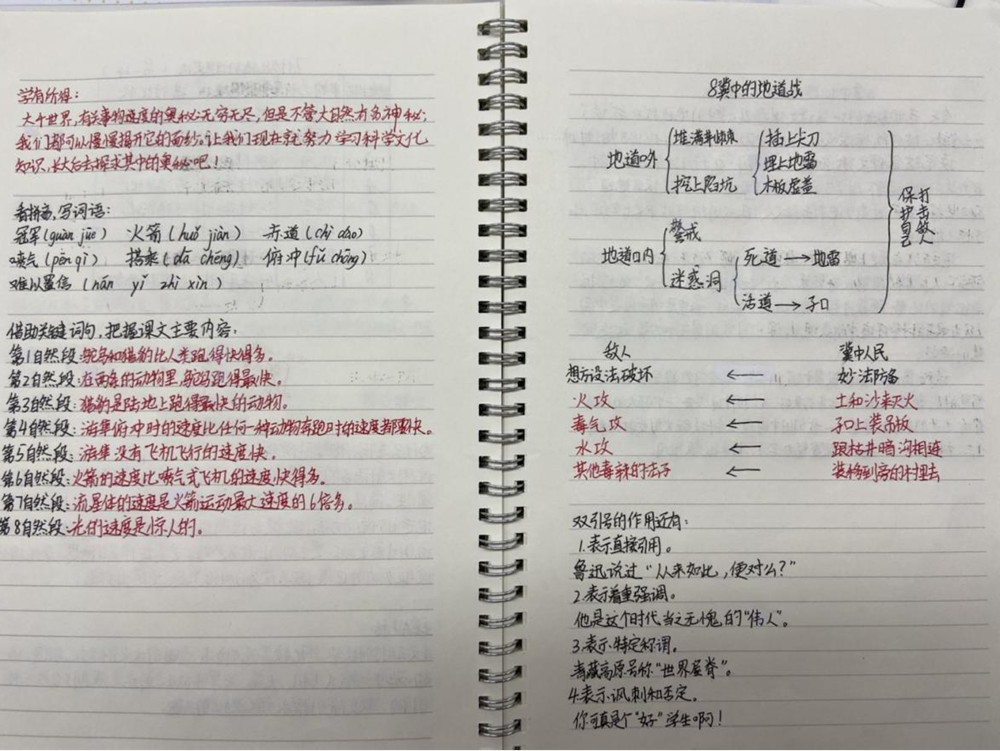 学有所得：
大千世界,有关事物速度的奥秘无穷无尽,但是不管大自然有多神秘,
我们都可以慢慢揭开它的面纱。让我们现在就努力学习科学文化
知识,长大后去探求其中的奥秘吧！
看拼音,写词语：
冠军(guàn jūn) 火箭(huǒ jiàn) 赤道(chì dào)
喷气(pēn qì) 搭乘(dā chéng) 俯冲(fǔ chōng)
难以置信(nán yǐ zhì xìn)
借助关键词句,把握课文主要内容：
第1自然段:鸵鸟和猎豹比人类跑得快得多。
第2自然段:在两条腿的动物里,鸵鸟跑得最快。
第3自然段:猎豹是陆地上跑得最快的动物。
第4自然段:游隼俯冲时的速度比任何一种动物奔跑时的速度都要快。
第5自然段:游隼没有飞机飞行的速度快。
第6自然段:火箭的速度比喷气式飞机的速度快得多。
第7自然段:流星体的速度是火箭运动最大速度的6倍多。
第8自然段:光的速度是惊人的。
8冀中的地道战
地道口外
堆满荆棘
挖上陷坑
插上尖刀
埋上地雷
木板虚盖
地道口内
警戒
迷惑洞
死道→地雷
活道→孑口
打击敌人
保护自己
敌人 冀中人民
想方设法破坏 ← 妙法防备
火攻 ← 土和沙来灭火
毒气攻 ← 孑口上装吊板
水攻 ← 跟枯井暗沟相连
其他毒辣的法子 ← 转移到旁的村里去
双引号的作用还有：
1.表示直接引用。
鲁迅说过“从来如此,便对么?”
2.表示着重强调。
他是这个时代当之无愧的“伟人”。
3.表示特定称谓。
青藏高原号称“世界屋脊”。
4.表示讽刺和否定。
你可真是个“好”学生啊！